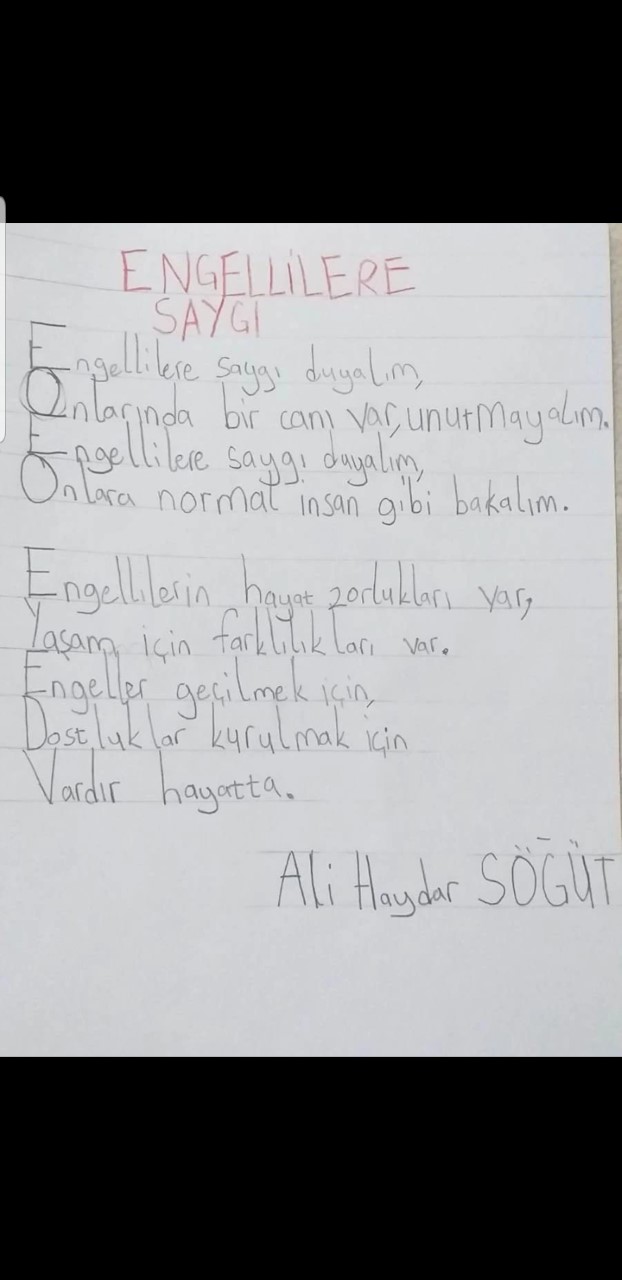 ENGELLİLERE
SAYGI
Engellilere saygı duyalım,
Onlarında bir canı var, unutmayalım.
Engellilere saygı duyalım,
Onlara normal insan gibi bakalım.
Engellilerin hayat zorlukları var,
Yaşam için farklılıkları var.
Engeller geçilmek için,
Dostluklar kurulmak için
Vardır hayatta.
Ali Haydar SÖĞÜT